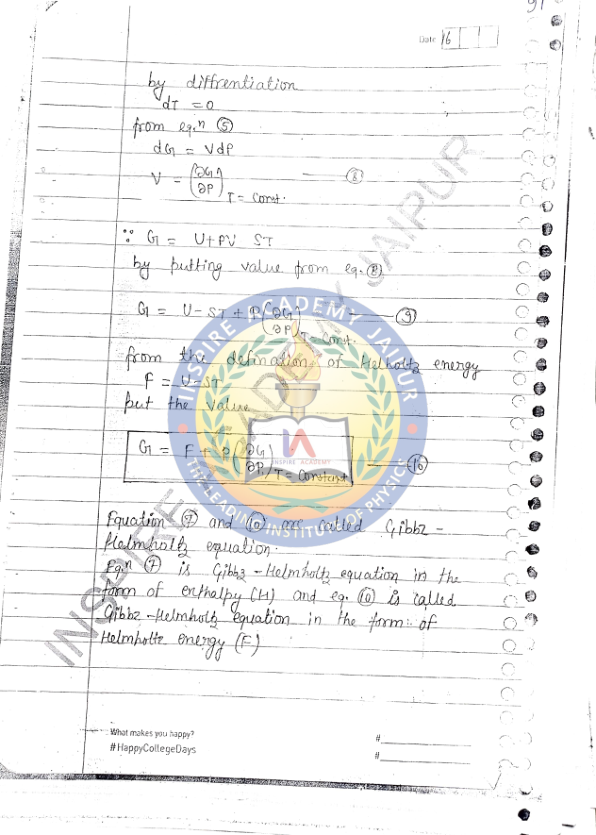 91
Date 16
by diffrentiation
dT = 0
from eq.n ⑤
dG = Vdp
V = (∂G/∂P) T = Const. — ⑧
∵ G = U+PV ST
by putting value from eq. ⑧
G = U - ST + P(∂G/∂P) T = Const. — ⑨
from the defination of Helholtz energy
F = U - ST
put the value
G = F + P(∂G/∂P) T = Constant — ⑩
Equation ⑦ and ⑩ are called Gibbz -
Helmholtz equation.
Eq.n ⑦ is Gibbz - Helmholtz equation in the
form of enthalpy (H) and eq. ⑩ is called
Gibbz - Helmholtz equation in the form of
Helmholtz energy (F)
What makes you happy?
#HappyCollegeDays
#
#
INSPIRE ACADEMY JAIPUR
INSPIRE ACADEMY JAIPUR
INSPIRE ACADEMY
THE LEADING INSTITUTE OF PHYSICS